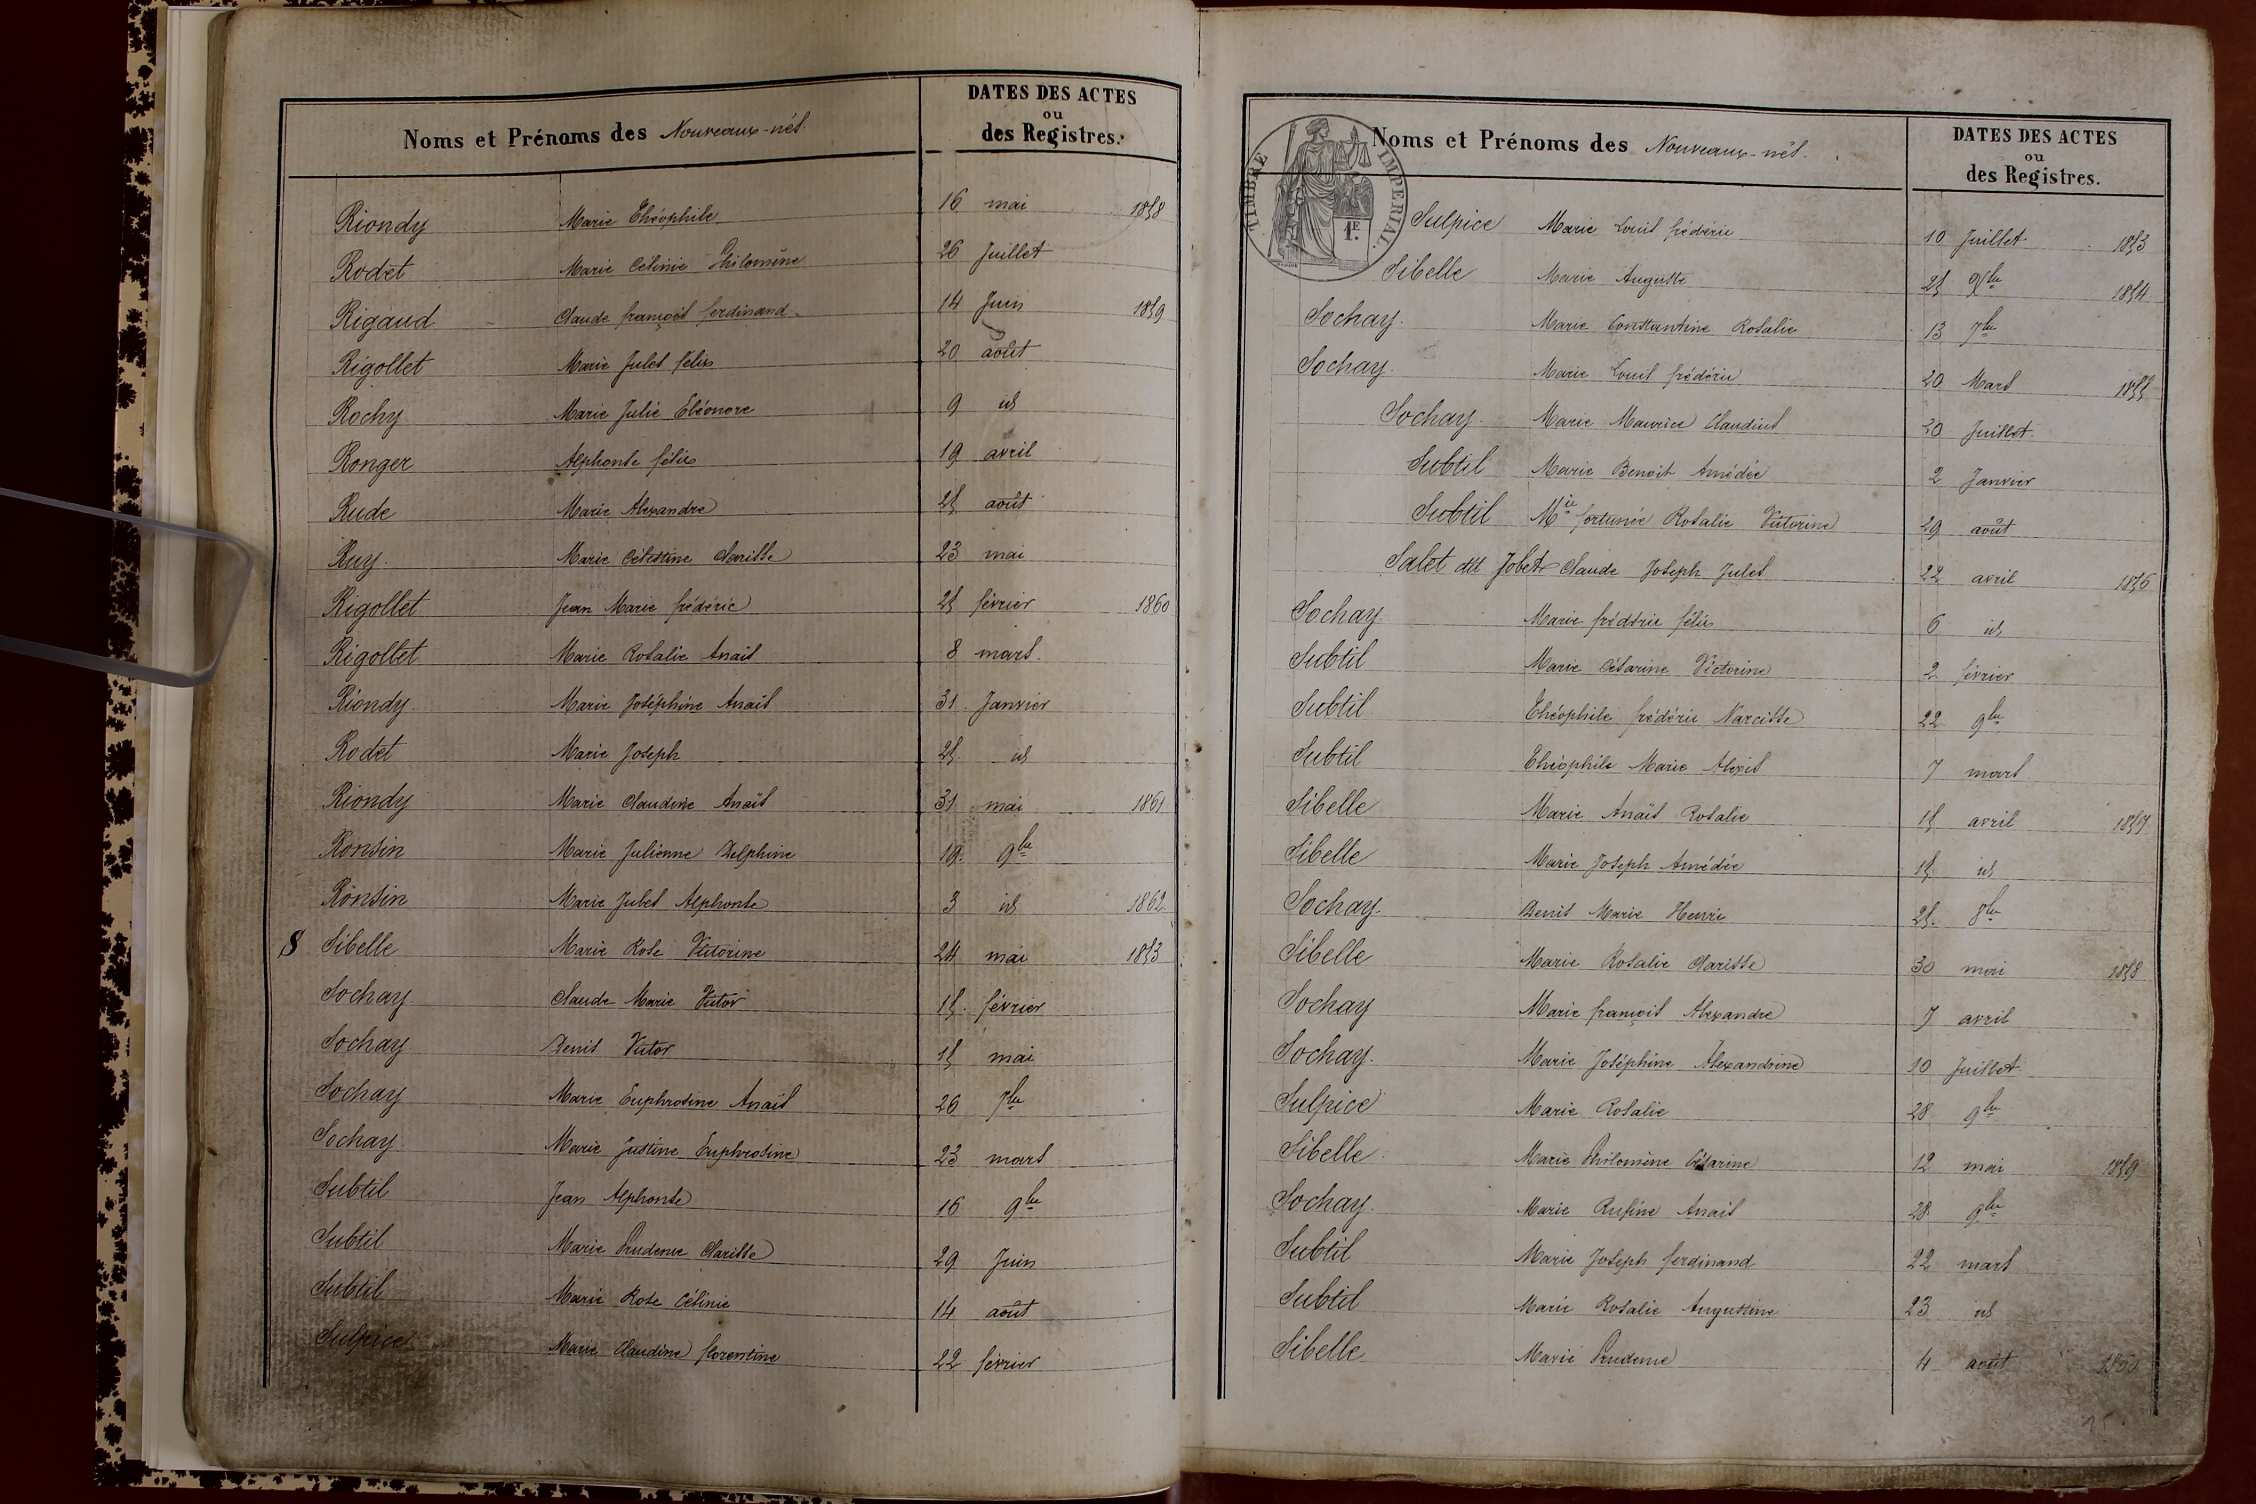 Noms et Prénoms des Nouveaux-nés.
DATES DES ACTES
ou
des Registres.
Riondy Marie Théophile 16 mai 1858
Rodet Marie Célinie Philomène 26 Juillet
Rigaud Claude françois ferdinand 14 Juin 1859
Rigollet Marie Jules félix 20 août
Rochy Marie Julie Eléonore 9 id
Ronger Alphonse félix 19 avril
Rude Marie Alexandre 25 août
Ruy Marie Célestine Clarisse 23 mai
Rigollet Jean Marie frédéric 25 février 1860
Rigollet Marie Rosalie Anaïs 8 mars
Riondy Marie Joséphine Anaïs 31 Janvier
Rodet Marie Joseph 25 id
Riondy Marie Claudine Anaïs 31 mai 1861
Ronsin Marie Julienne Delphine 19 9bre
Ronsin Marie Jules Alphonse 3 id 1862
S Sibelle Marie Rose Victorine 24 mai 1853
Sochay Claude Marie Victor 15 février
Sochay Denis Victor 15 mai
Sochay Marie Euphrosine Anaïs 26 7bre
Sochay Marie Justine Euphrosine 23 mars
Subtil Jean Alphonse 16 9bre
Subtil Marie Prudence Clarisse 29 Juin
Subtil Marie Rose Célinie 14 août
Sulpice Marie Claudine florentine 22 février
Noms et Prénoms des Nouveaux-nés.
DATES DES ACTES
ou
des Registres.
TIMBRE IMPERIAL.
1E.
Sulpice Marie Louis frédéric 10 Juillet 1853
Sibelle Marie Auguste 25 Xbre 1854
Sochay Marie Constantine Rosalie 13 7bre
Sochay Marie Louis frédéric 20 Mars 1855
Sochay Marie Maurice Claudius 20 Juillet
Subtil Marie Benoit Amédée 2 Janvier
Subtil Mie fortunée Rosalie Victorine 29 août
Salet dit Jobet Claude Joseph Jules 22 avril 1856
Sochay Marie frédéric félix 6 id
Subtil Marie Césarine Victorine 2 février
Subtil Théophile frédéric Narcisse 22 9bre
Subtil Théophile Marie Alexis 7 mars
Sibelle Marie Anaïs Rosalie 15 avril 1857
Sibelle Marie Joseph Amédée 15 id
Sochay Denis Marie Henri 25 8bre
Sibelle Marie Rosalie Clarisse 30 mai 1858
Sochay Marie françois Alexandre 7 avril
Sochay Marie Joséphine Alexandrine 10 Juillet
Sulpice Marie Rosalie 28 9bre
Sibelle Marie Philomène Césarine 12 mai 1859
Sochay Marie Rufine Anaïs 28 9bre
Subtil Marie Joseph ferdinand 22 mars
Subtil Marie Rosalie Augustine 23 id
Sibelle Marie Prudence 4 août 1860